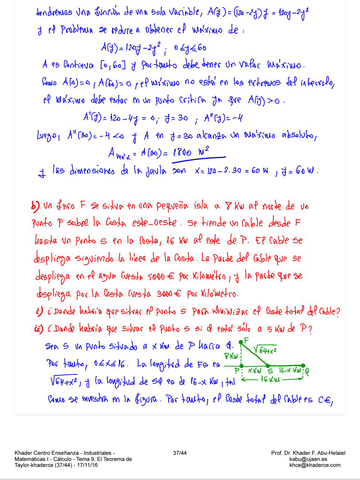 tendremos una función de una sola variable, A(y) = (120-2y)y = 120y-2y²
y el problema se reduce a obtener el máximo de:
A(y) = 120y-2y² ; 0≤y≤60
A es continua en [0,60] y por tanto debe tener un valor máximo.
Como A(0)=0, A(60)=0, el máximo no está en los extremos del intervalo,
el máximo debe estar en un punto crítico ya que A(y)>0.
A'(y) = 120-4y = 0; y = 30 ; A''(y) = -4
Luego, A''(30) = -4 <0 y A en y=30 alcanza un máximo absoluto,
Amáx = A(30) = 1800 m²
y las dimensiones de la jaula son x = 120-2·30 = 60 m, y =
b) Un faro F se situa en una pequeña isla a 8 km al norte de un
punto P sobre la costa este-oeste. Se tiende un cable desde F
hasta un punto S en la costa, 16 km al este de P. El cable se
despliega siguiendo la línea de la costa. La parte del cable que se
despliega en el agua cuesta 5000 € por kilómetro, y la parte que se
despliega por la costa cuesta 3000 € por kilómetro.
c) ¿Donde habría que situar el punto S para minimizar el coste total del cable?
¿Donde habría que situar el punto S si Q está sólo a 5 km de P?
Sea S un punto situado a x km de P hacia Q.
Por tanto, 0≤x≤16. La longitud de FS es
√64+x², y la longitud de SQ es de 16-x km, tal
como se muestra en la figura. Por tanto, el coste total del cable es C €,
F
8 km
√64+x²
P x km S 16-x km Q
16 km
Khader Centro Enseñanza - Industriales -
Matemáticas I - Cálculo - Tema 9. El Teorema de
Taylor-khaderce (37/44) - 17/11/16
37/44
Prof. Dr. Khader F. Abu-Helaiel
kabu@ujaen.es
khce@khaderce.com